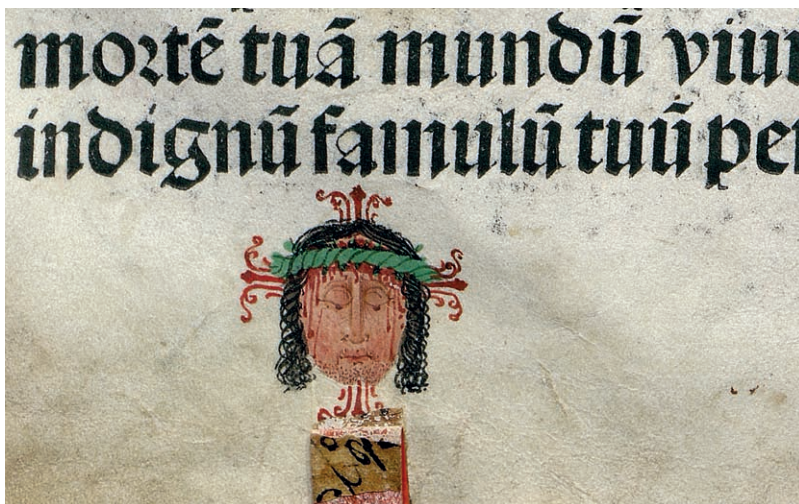 mortē tuā mundū viu
indignū famulū tuū pe